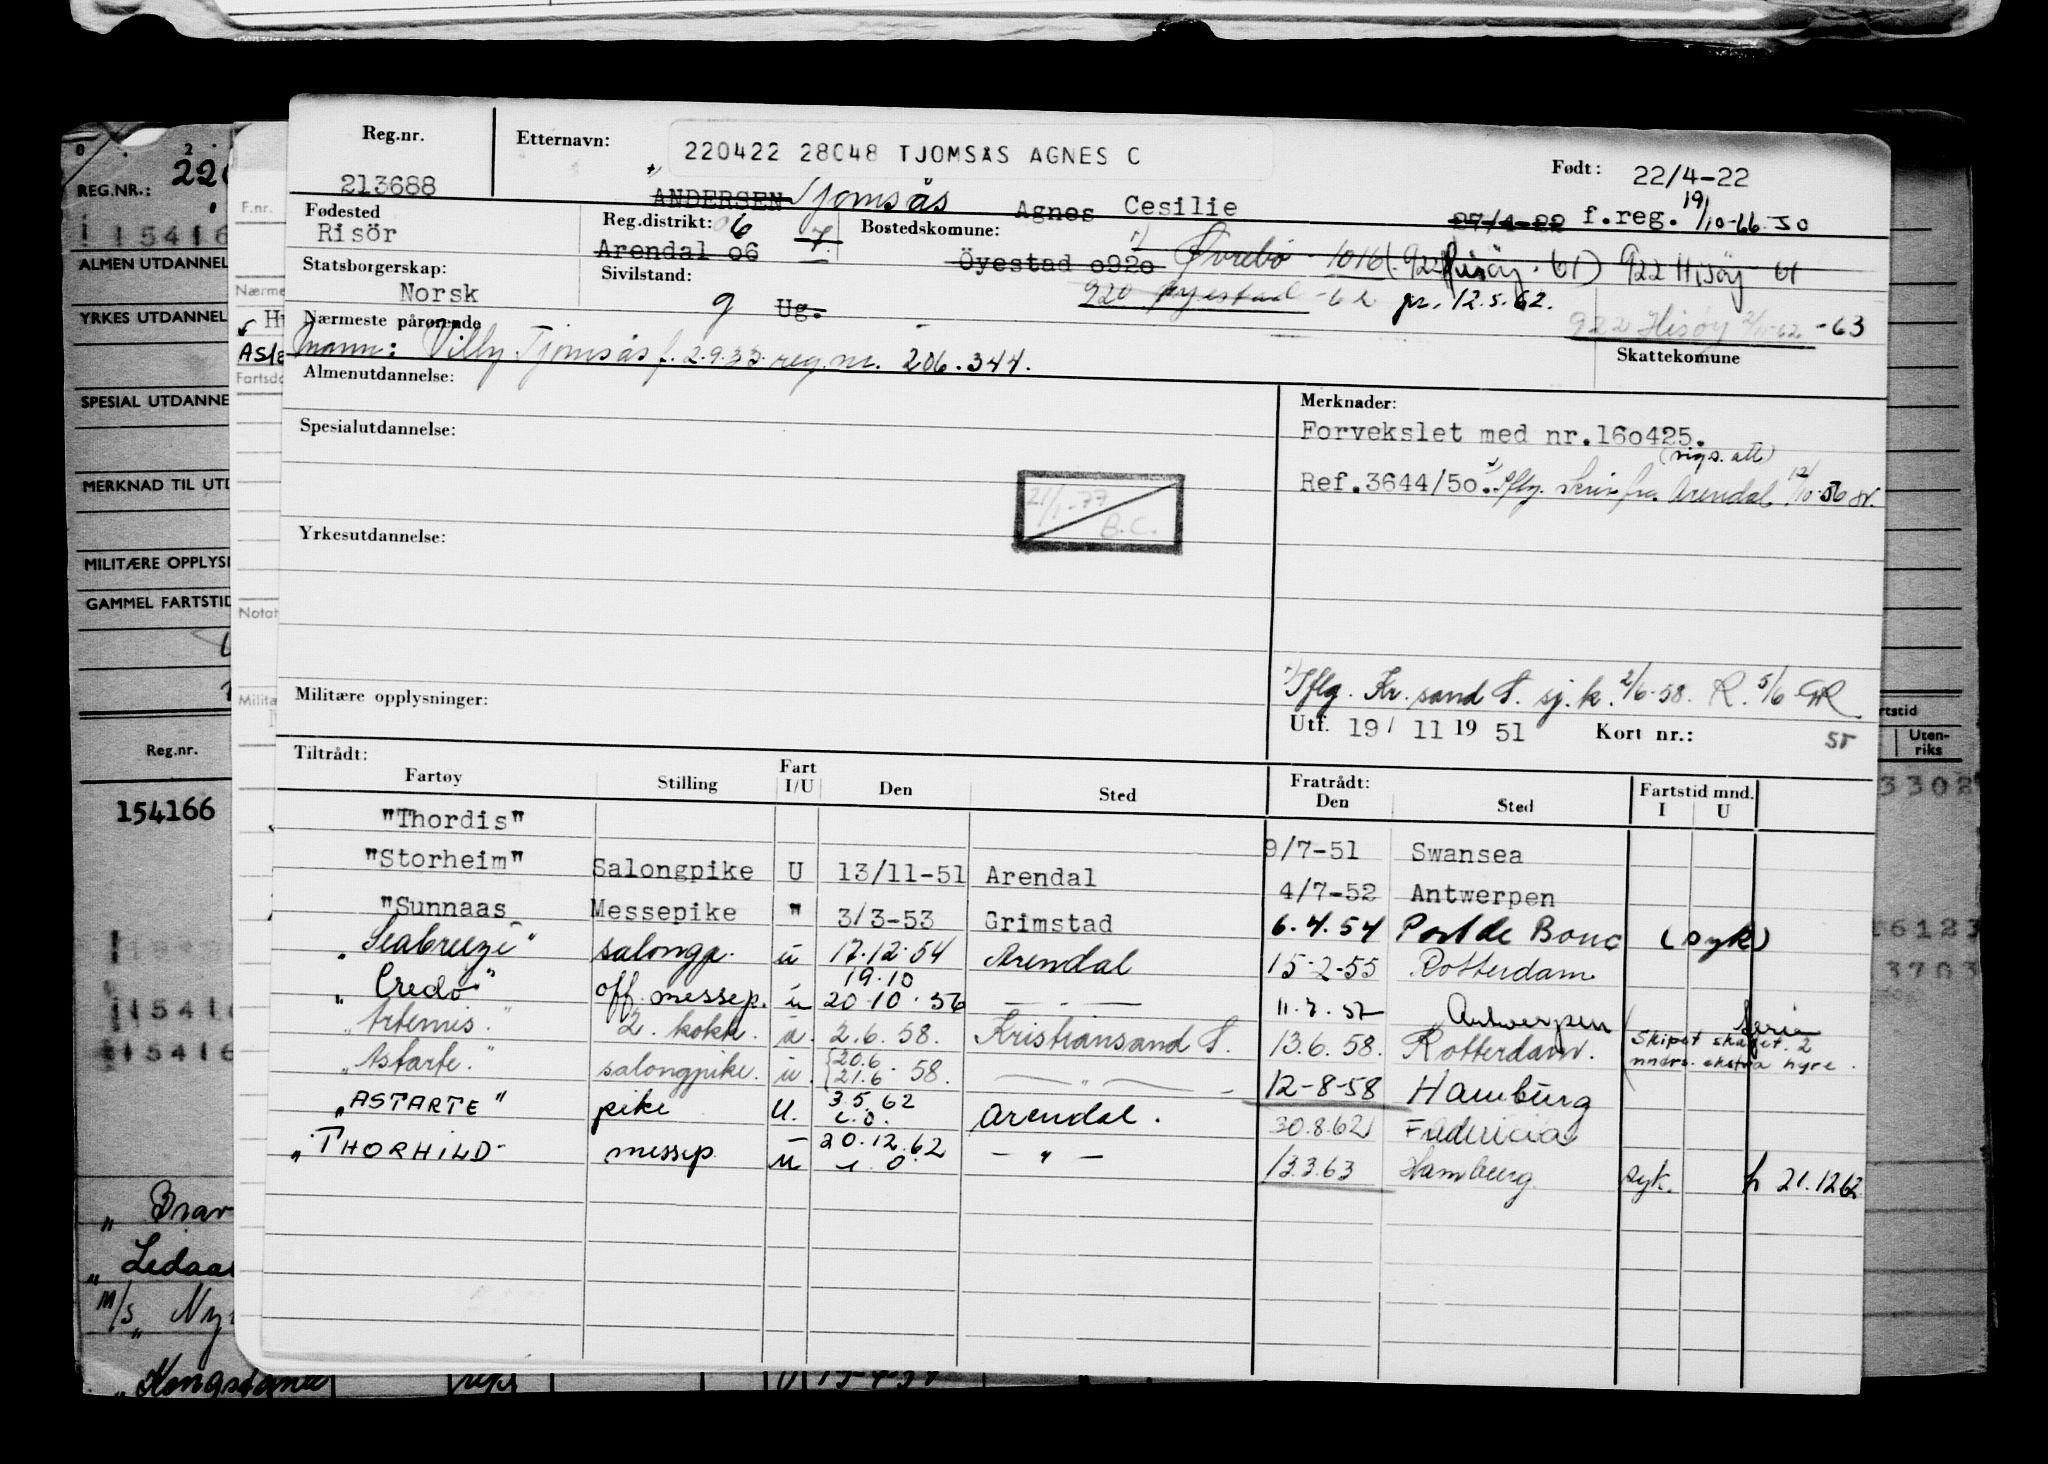 Reg.nr.
213688
Etternavn:
220422 28048 TJOMSÅS AGNES C
ANDERSEN Tjomsås
Agnes Cesilie
Født: 22/4-22
27/4-22 f.reg. 19/10-66 JO
Fødested
Risör
Reg.distrikt: 06 7.
Arendal o6
Bostedskomune:
Öyestad o92o Øvrebø - 1016 (922 Hisøy - 61) 922 Hisøy 61
920 Øyestad - 62 pr. 12.5.62.
922 Hisøy 2/1-62 -63
Skattekomune
Statsborgerskap:
Norsk
Sivilstand:
g Ug.
Nærmeste pårørende
Mann: Villy Tjomsås f. 2.9.33. reg.nr. 206.344.
Almenutdannelse:
Spesialutdannelse:
21/1-77
B.C.
Yrkesutdannelse:
Militære opplysninger:
Merknader:
Forvekslet med nr.16o425.
(vigs. att)
Ref.3644/5o. Iflg. skriv fra Arendal 12/10-56
Iflg. Kr.sand S. sj.k. 2/6-58. R. 5/6 GR
Utf. 19/ 11 19 51 Kort nr.: ST
Tiltrådt:
Fartøy Stilling Fart I/U Den Sted Fratrådt: Den Sted Fartstid mnd. I U
"Thordis" 9/7-51 Swansea
"Storheim" Salongpike U 13/11-51 Arendal 4/7-52 Antwerpen
"Sunnaas Messepike " 3/3-53 Grimstad 6.4.54 Port de Bouc (syk)
"Seabreeze" salongp. u 17.12.54 Arendal 15-2-55 Rotterdam
"Credo" off. messep. u 19.10 20.10.56 — " — 11.7.57 Antwerpen ferie
"Artemis." 2. kokk. u. 2.6.58. Kristiansand S. 13.6.58. Rotterdam. Skipet skaffet. 2 mndrs. ekstra hyre.
"Astarte." salongpike. u. 20.6 21.6 58. — " — 12-8-58 Hamburg
"ASTARTE" pike U. 3.5.62 Arendal. 30.8.62 Fredericia
"THORHILD" messep u 20.12.62 — " — 13.3.63 Hamburg syk. h 21.12.62
REG.NR.:
ALMEN UTDANNEL
YRKES UTDANNEL
SPESIAL UTDANNE
MERKNAD TIL UTD
MILITÆRE OPPLYS
GAMMEL FARTSTID
Reg.nr.
154166
F.nr.
Nærme
Fartsdo
Notat
Milita
Uten-
riks
3302
6123
3703
" Brav
" Ledaa
M/s " Ny
" Kongs